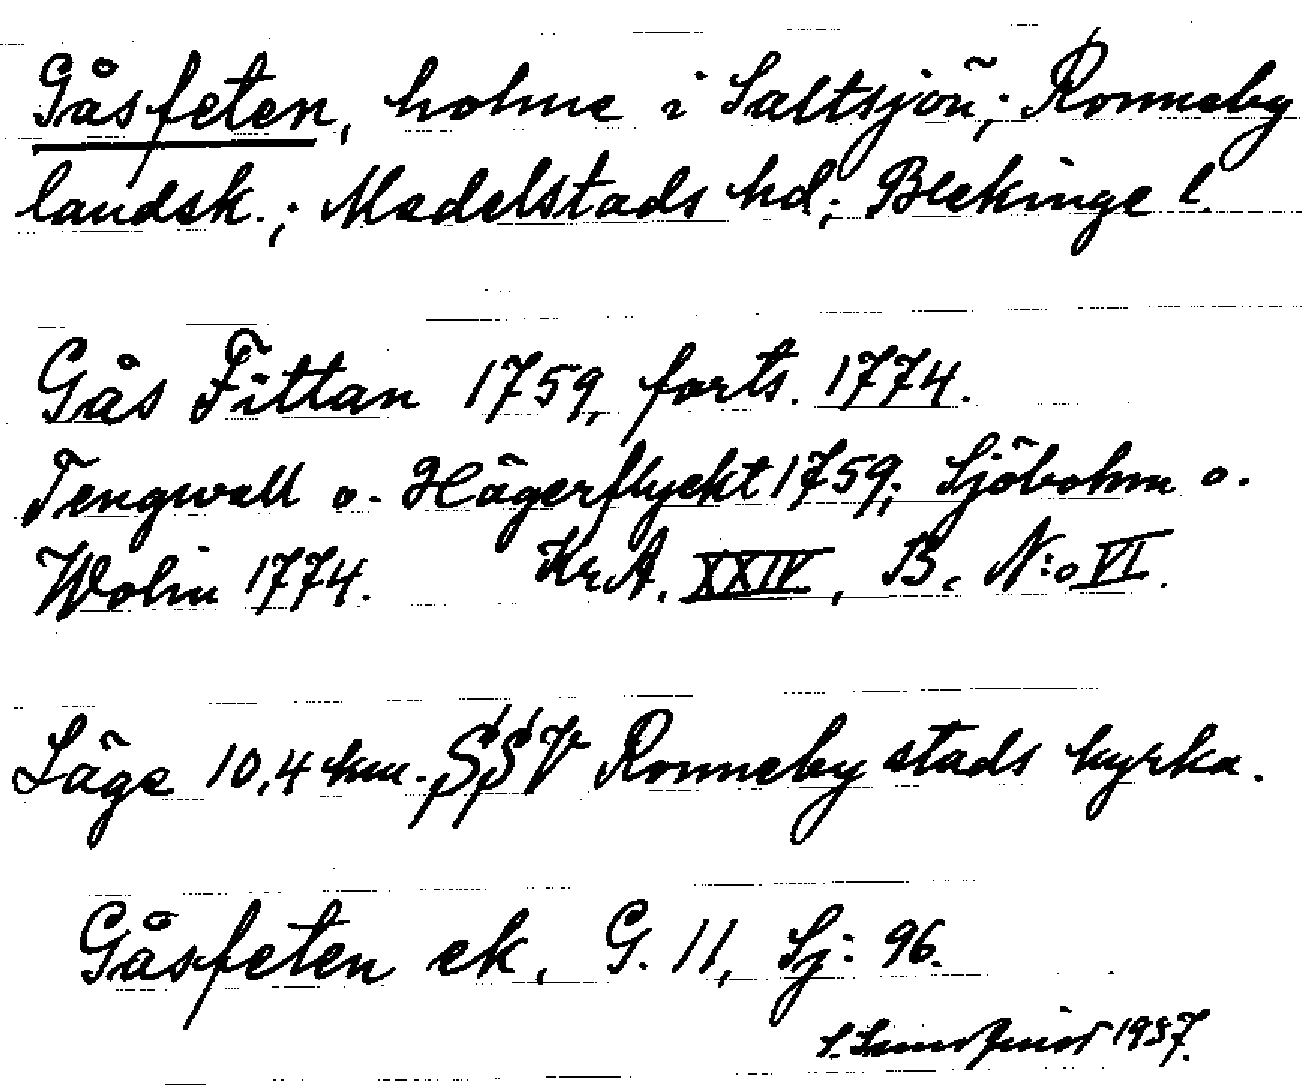 Gåsfeten, holme i Saltsjön; Ronneby
landsk.; Medelstads hd; Blekinge l.
Gås Fittan 1759, forts. 1774.
Tengwall o. Hägerflyckt 1759; Sjöbohm o.
Wolin 1774. Kr.A. XXIV, B, N:o VI.
Läge 10,4 km. SSV Ronneby stads kyrka.
Gåsfeten ek, G. 11, Sj: 96.
1937.